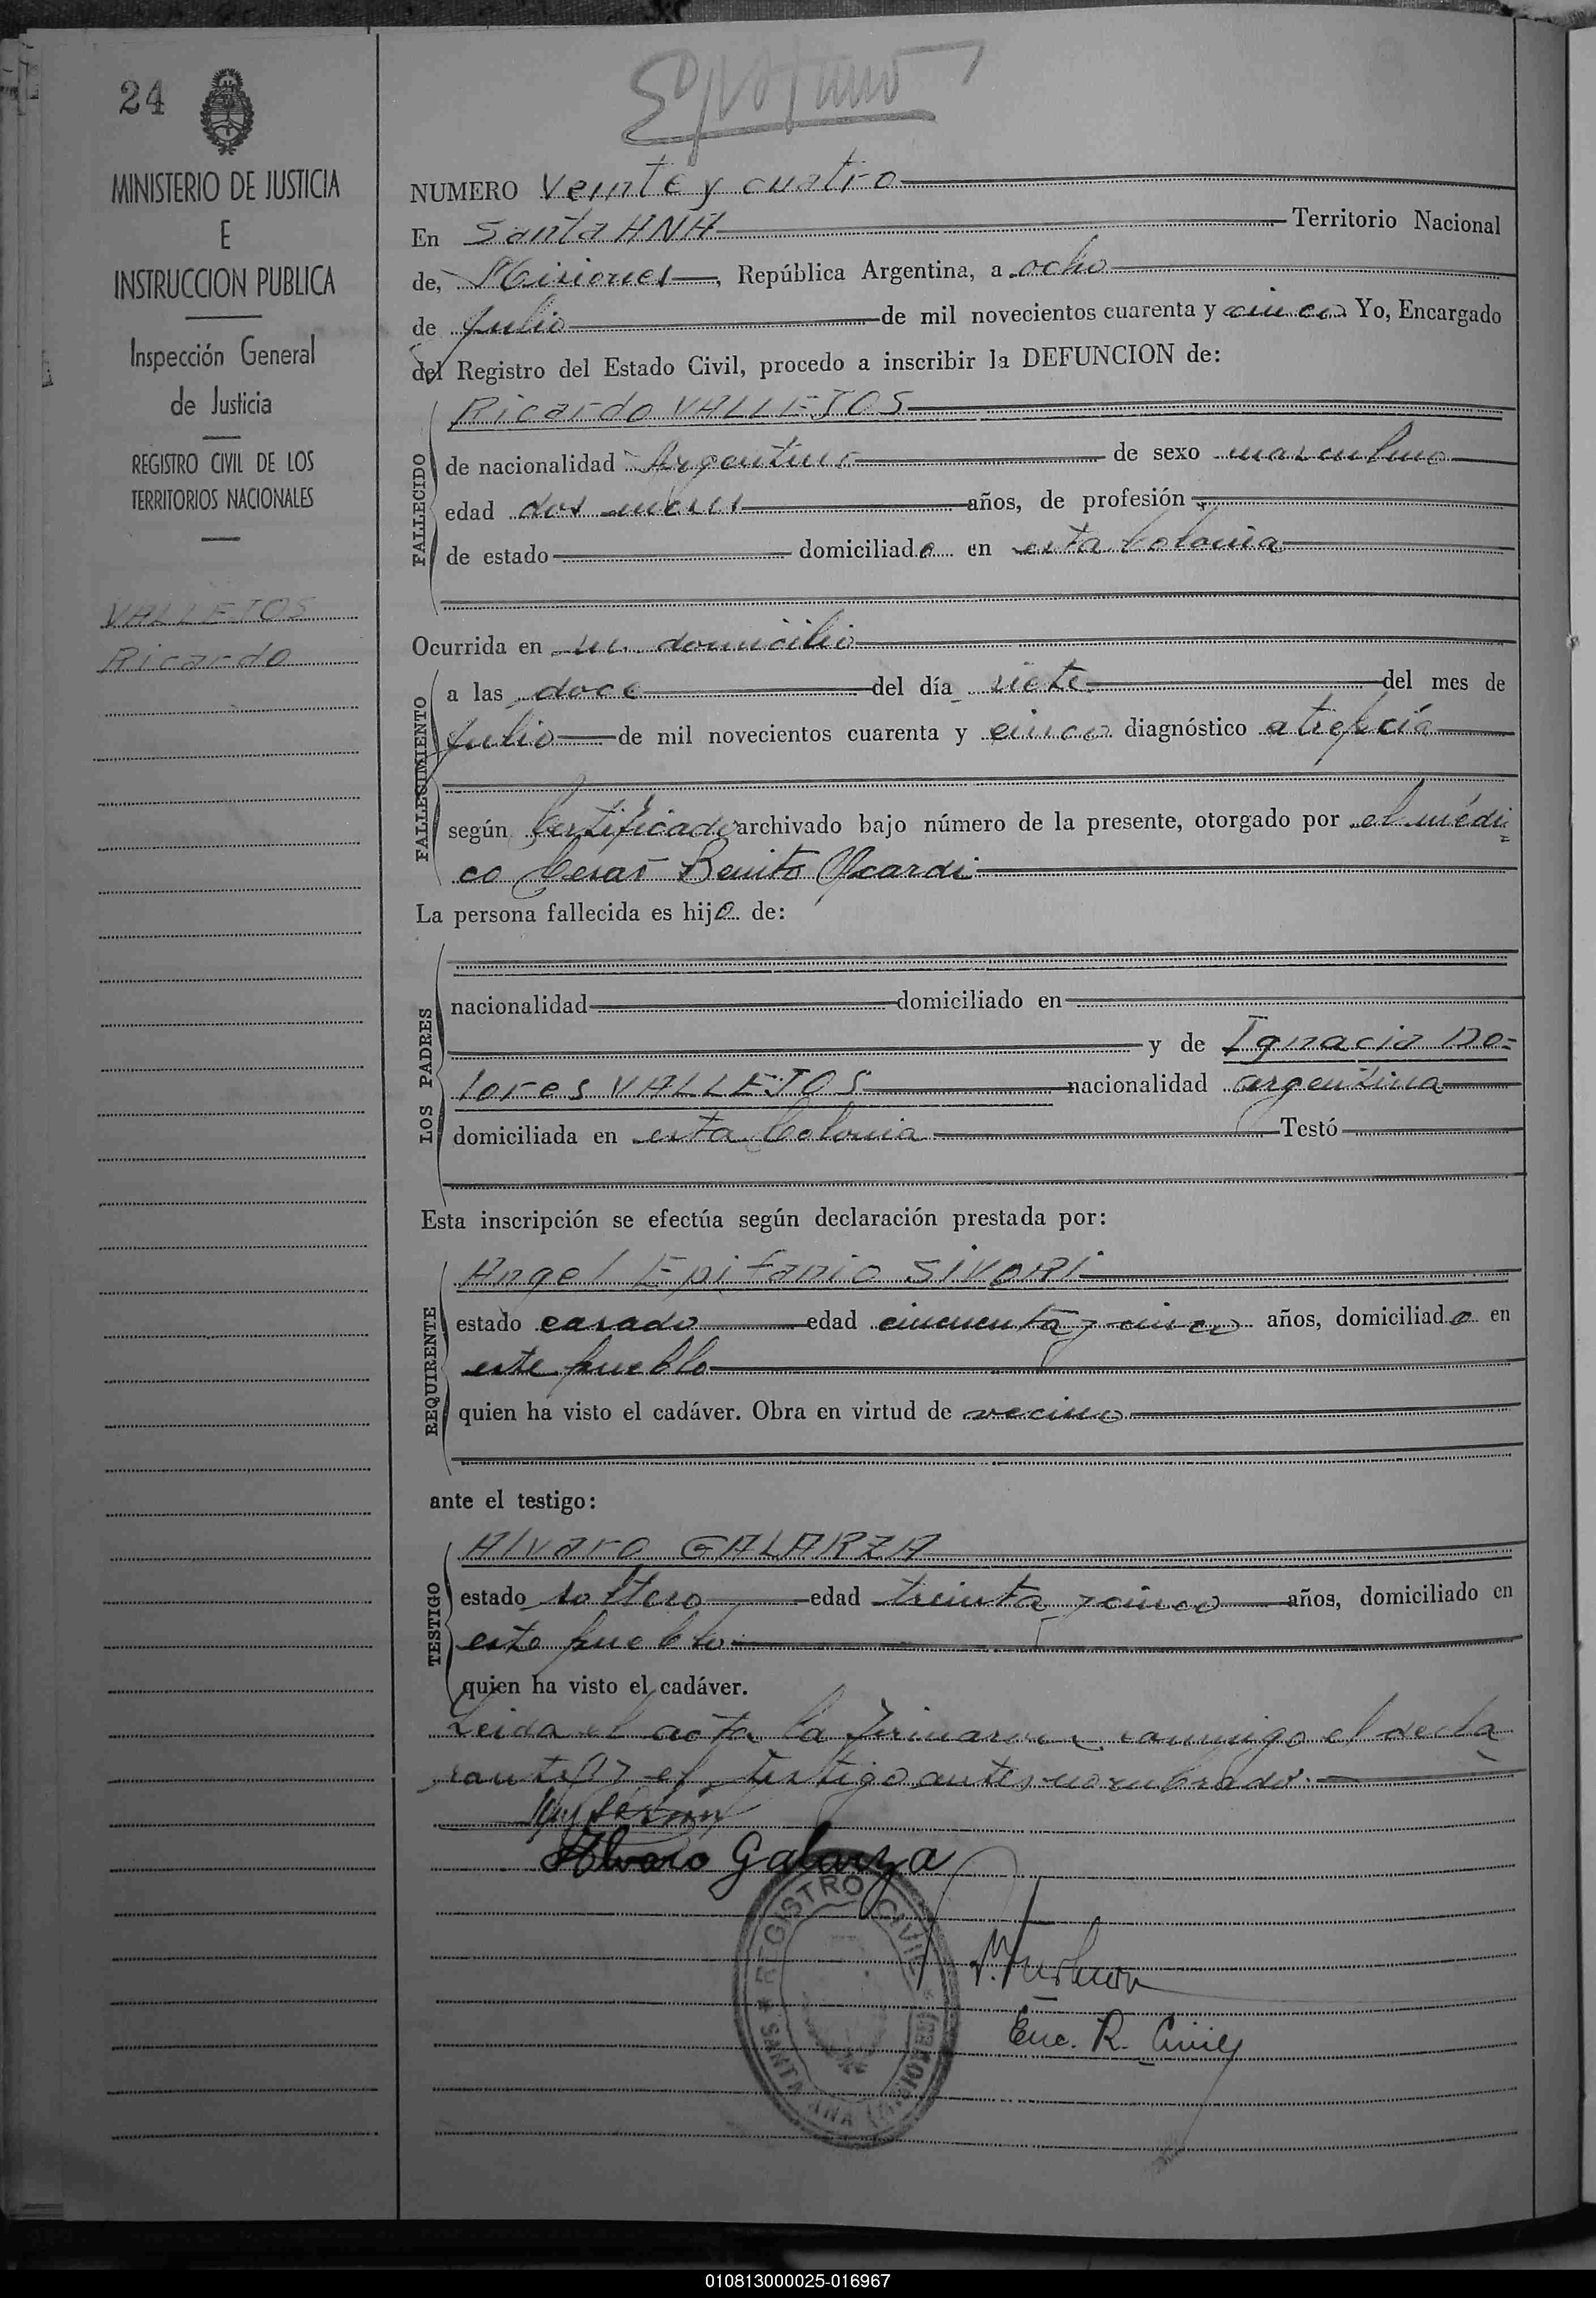 24
MINISTERIO DE JUSTICIA
E
INSTRUCCION PUBLICA
Inspección General
de Justicia
REGISTRO CIVIL DE LOS
TERRITORIOS NACIONALES
VALLEJOS
Ricardo
NUMERO Veinte y cuatro
En Santa ANA Territorio Nacional
de, Misiones, República Argentina, a ocho
de Julio de mil novecientos cuarenta y cinco Yo, Encargado
del Registro del Estado Civil, procedo a inscribir la DEFUNCION de:
FALLECIDO
Ricardo VALLEJOS
de nacionalidad Argentino de sexo masculino
edad dos meses años, de profesión
de estado domiciliado en esta Colonia
Ocurrida en su domicilio
FALLECIMIENTO
a las doce del día siete del mes de
Julio de mil novecientos cuarenta y cinco diagnóstico atrepcia
según Certificado archivado bajo número de la presente, otorgado por el médi=
co Cesar Benito
La persona fallecida es hijo de:
LOS PADRES
nacionalidad domiciliado en
y de Ignacia Do=
lores VALLEJOS nacionalidad argentina
domiciliada en esta Colonia Testó
Esta inscripción se efectúa según declaración prestada por:
REQUIRENTE
Angel Epifanio SIVORI
estado casado edad cincuenta y cinco años, domiciliado en
este pueblo
quien ha visto el cadáver. Obra en virtud de vecino
ante el testigo:
TESTIGO
Alvaro GALARZA
estado soltero edad treinta y cinco años, domiciliado en
este pueblo
quien ha visto el cadáver.
Leida el acta la firmaron conmigo el decla
rante y el testigo antes nombrado.
Alvaro Galarza
REGISTRO CIVIL
SANTA ANA (MISIONES)
Enc. R. Civil
010813000025-016967